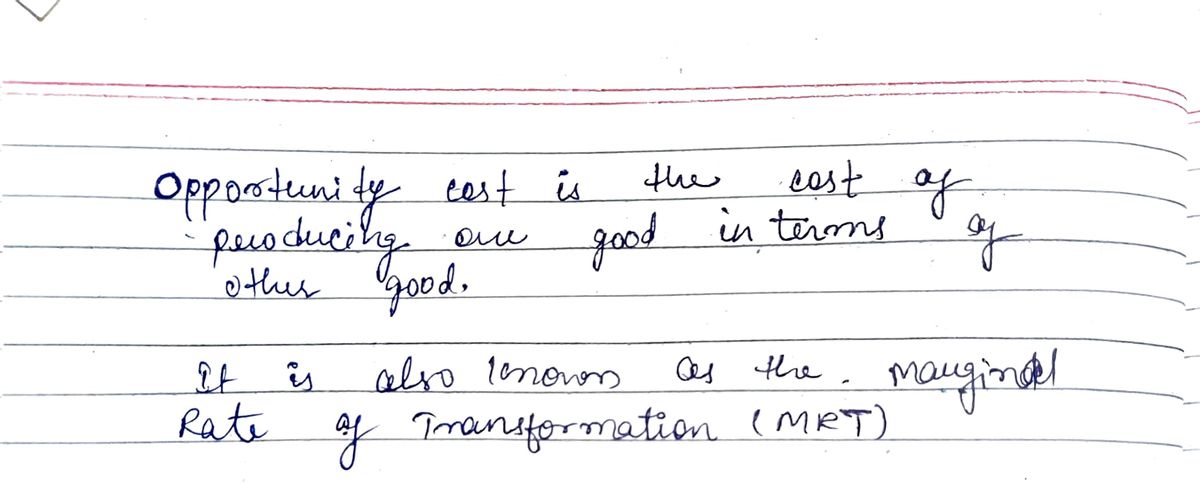 Opportunity cost is the cost of
producing one good in terms of
other good.
It is also known as the Marginal
Rate of Transformation (MRT)